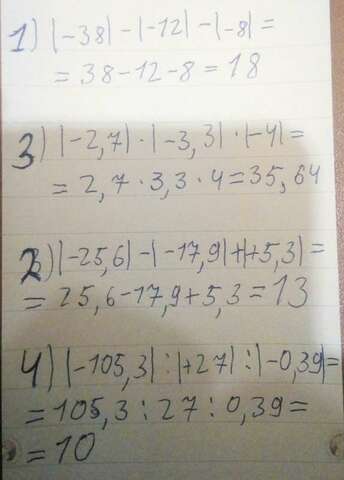 1) |-38|-|-12|-|-8|=
= 38-12-8=18
3) |-2,7|·|-3,3|·|-4|=
= 2,7·3,3·4=35,64
2) |-25,6|-|-17,9|+|+5,3|=
= 25,6-17,9+5,3=13
4) |-105,3|:|+27|:|-0,39|=
=105,3:27:0,39=
=10